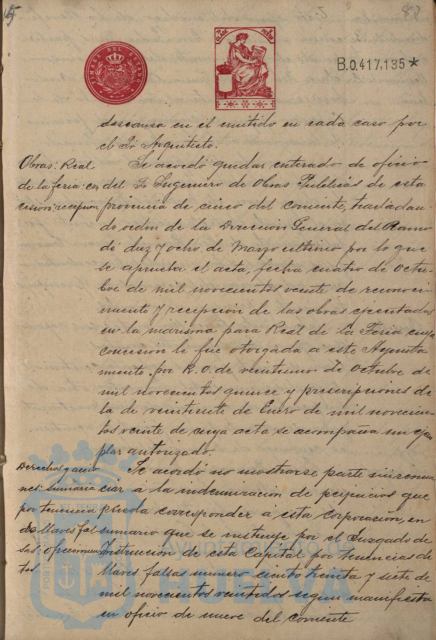 B.0.417,135*
descansa en el emitido en cada caso por
el Sr Arquitecto.
Obras: Real
de la feria: con
cesion: recepcion
Se acordó quedar enterado de oficio
del Sr Ingeniero de Obras Publicas de esta
provincia de cinco del corriente, trasladan-
do orden de la Direccion General del Ramo
de diez y ocho de Mayo ultimo por lo que
se aprueba el acta, fecha cuatro de octu-
bre de mil novecientos veinte de reconoci-
miento y recepcion de las obras ejecutadas
en la marisma para Real de la Feria cuya
concesion le fue otorgada á este Ayunta
miento por R. O. de veintiuno de Octubre de
mil novecientos quince y prescripciones de
la de veintisiete de Enero de mil novecien-
tos veinte de cuya acta se acompaña un ejem
plar autorizado.
Se acordó no mostrarse parte sin renun
ciar á la indemnizacion de perjuicios que
pueda corresponder á esta Corporacion, en
sumario que se instruye por el Juzgado de
Instruccion de esta Capital por tenencias de
llaves falsas numero ciento treinta y siete de
mil novecientos veintidos segun manifiesta
en oficio de nueve del corriente